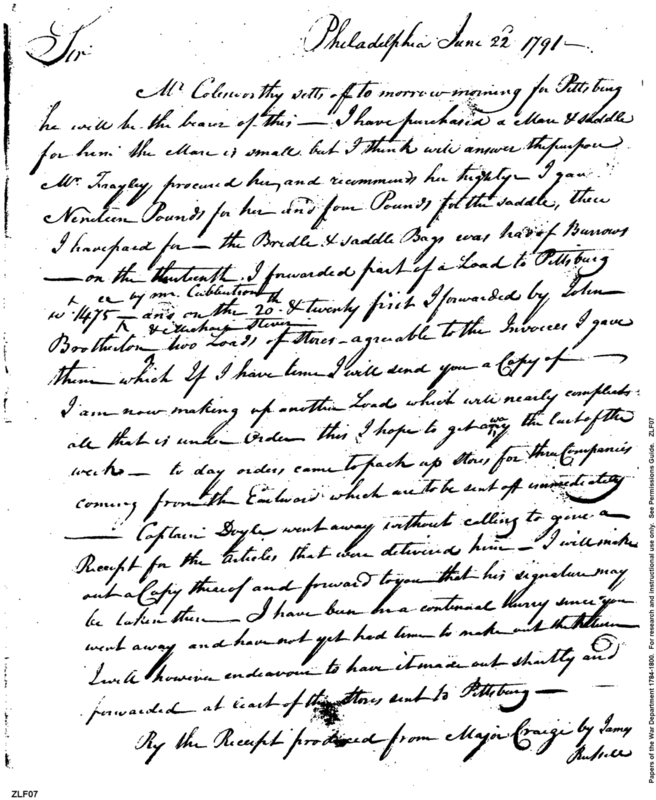 Philadelphia June 22d 1791—
Sir
Mr Colesworthy setts off to morrow morning for Pittsburg
he will be the bearer of this — I have purchased a Mare & saddle
for him the Mare is small but I think will answer the purpose
Mr. procured her, and recommends her highly I gave
Nineteen Pounds for her and four Pounds for the saddle, these
I have paid for — the Bridle & saddle Bags was had of Burrows
— on the thirteenth I forwarded part of a Load to Pittsburg
by mr.
wt 1475 — and on the 20th & twenty first I forwarded by John
&
Brotherton two Loads of Stores — agreable to the Invoices I gave
them which If I have time I will send you a Copy of —
I am now making up another Load which will nearly compleat
all that is under Order this I hope to get away the last of the
week — to day orders came to pack up Stores for three Companies
coming from the Eastward which are to be sent off immediately
— Captain Doyle went away without calling to give a
Receipt for the articles that were delivered him — I will make
out a Copy thereof and forward to you that his signature may
be taken there — I have been in a continual hurry since you
went away and have not yet had time to make out the Return
I will however endeavour to have it made out shortly and
forwarded at least of the Stores sent to Pittsburg —
By the Receipt produced from Major Craige by James
Russell
Papers of the War Department 1784-1800. For research and instructional use only. See Permissions Guide. ZLF07
ZLF07